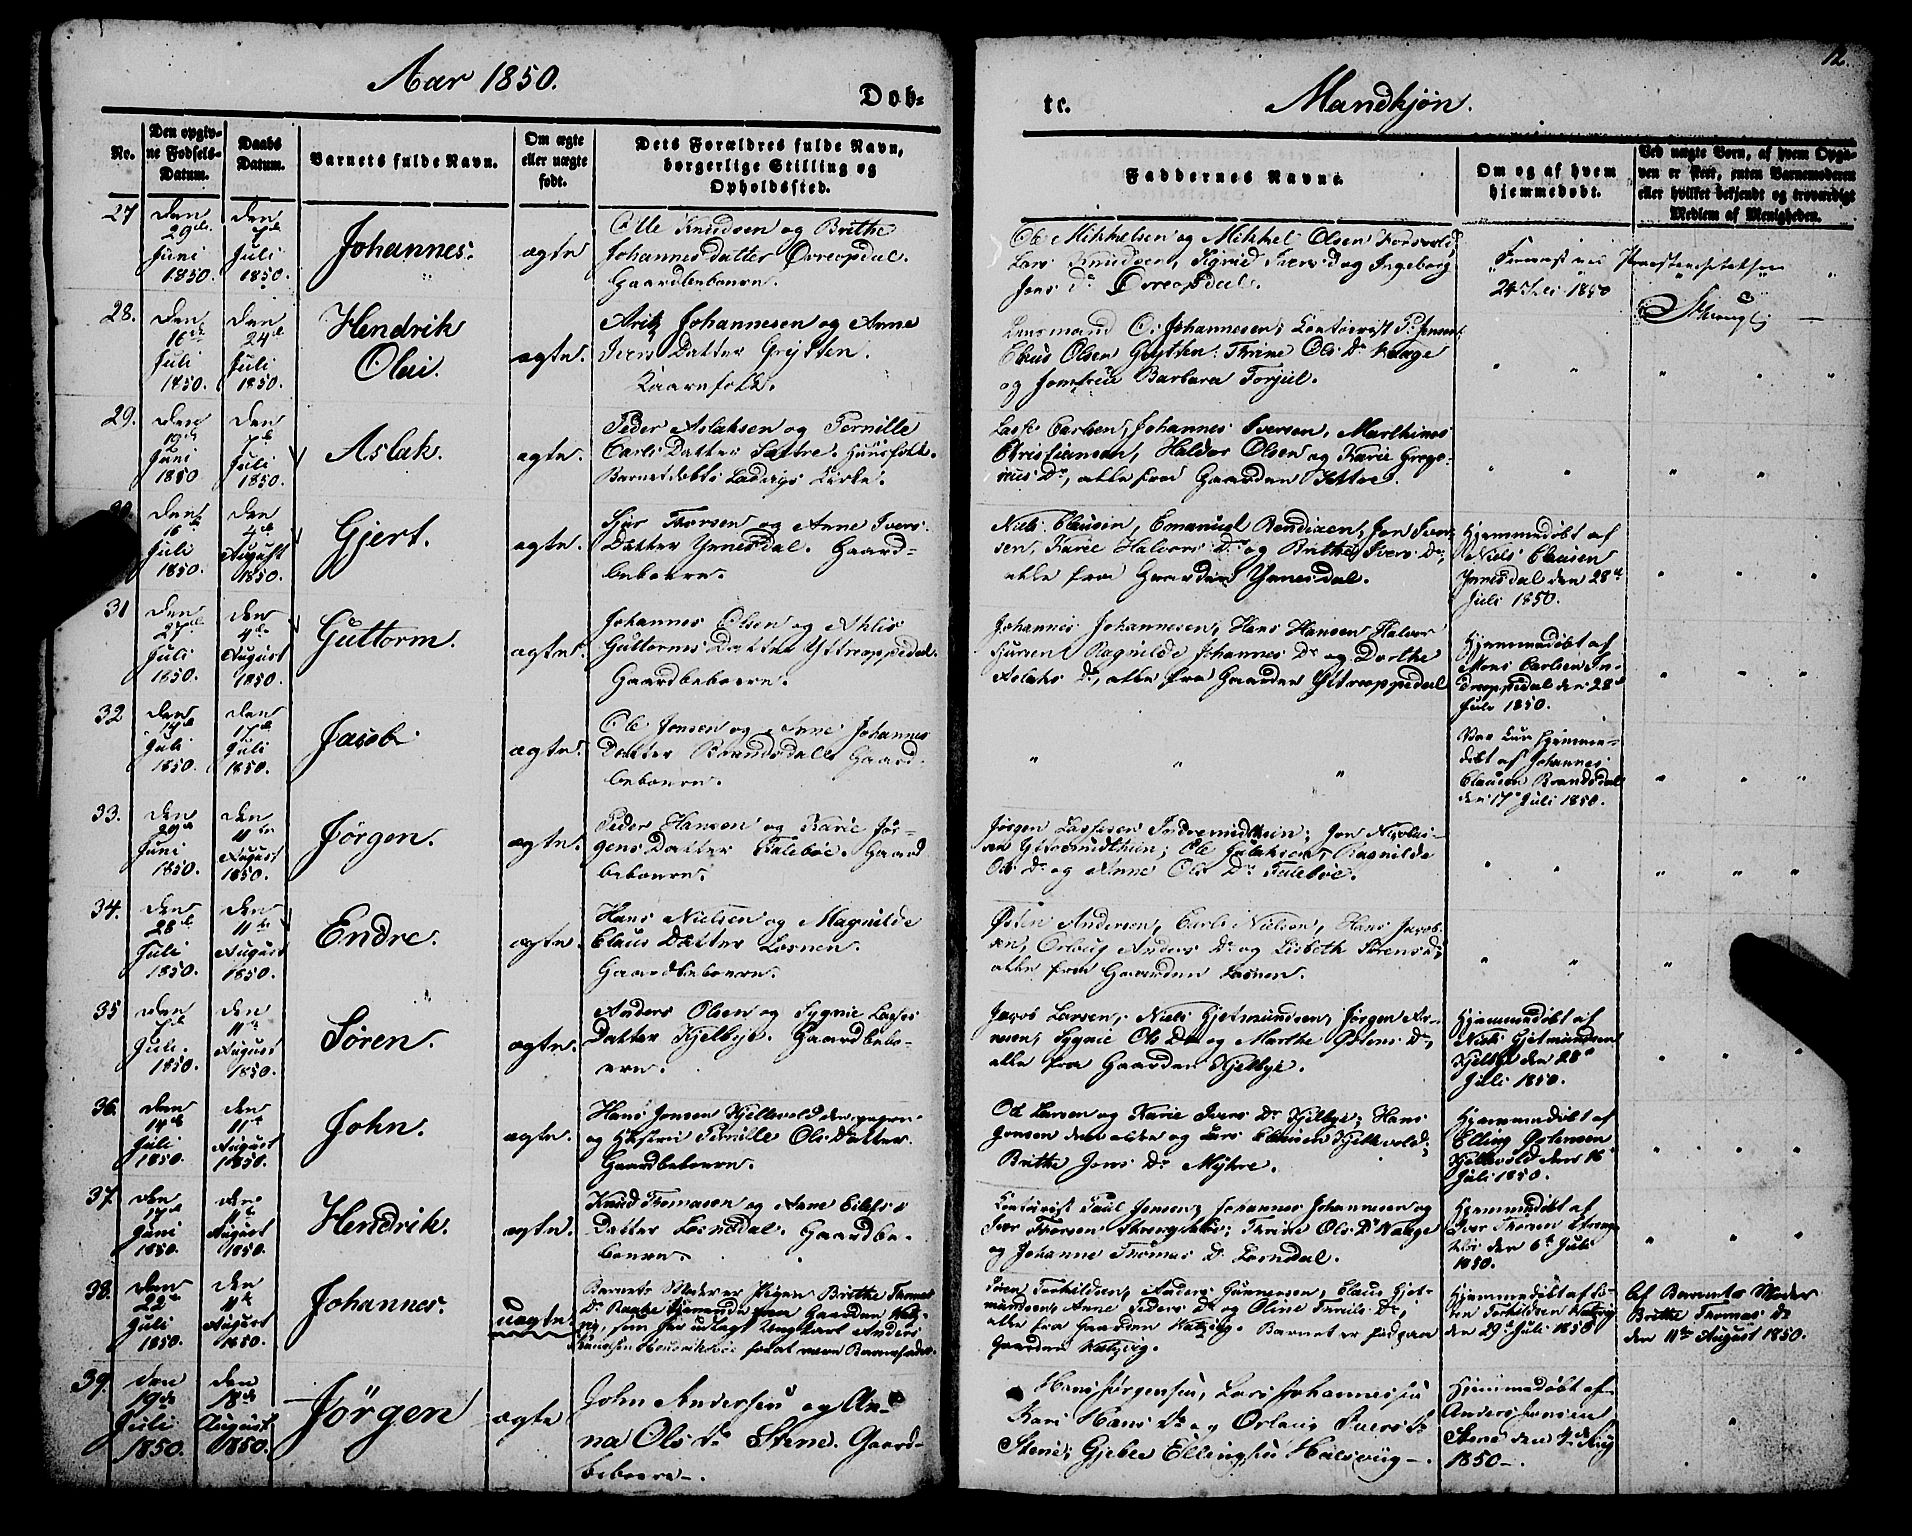 12.
Aar 1850.
Døb-
te.
Mandkjøn.
No.
Den opgiv-
ne Fødsels-
Datum.
Daabs
Datum.
Barnets fulde Navn.
Om ægte
eller uægte
født.
Dets Forældres fulde Navn,
borgerlige Stilling og
Opholdssted.
Faddernes Navne.
Om og af hvem
hjemmedøbt.
Ved uægte Børn, af hvem Opgi-
ven er skeet, enten Barnemoderen
eller hvilket bekjendt og troværdigt
Medlem af Menigheden.
27
den
29de
Juni
1850.
den
7de
Juli
1850.
Johannes.
ægte
Olle Knudsen og Brithe
Johannesdatter Øvreopdal.
Gaardbeboere.
Ole Mikkelsen og Mikkel Olsen
Lars Knudsen, Sigvie Ivers D. og Ingeborg
Jens Dr Øvreopdal.
24 Juli 1850
28.
Den
16de
Juli
1850.
Den
24de
Juli
1850.
Hendrik
Olai.
ægte.
Johannesen og Anne
Ivers Datter Grytten.
Lensmand O. Johannesen; Contorist P. Jensen;
Claus Olsen Grytten; Thrine Ols Dr Kaage
og Jomfrue Barbara Torjul.
29.
Den
Juni
1850
Den
7de
Juli
1850.
Aslak.
ægte.
Peder Aslaksen og Pernille
Carls Datter Sættre. Huusfolk.
Barnet døbt i Ladvigs Kirke.
Lasse Carlsen, Johannes Iversen, Marthinus
Christiensen, Haldor Olsen og Karie Grego-
rius Dr, alle fra Gaarden Settre.
Den
16de
Juli
1850.
Den
4de
August
1850.
Gjert.
ægte.
Sjur Thorsen og Anne Ivers
Datter Ynnesdal. Gaard-
beboere.
Niels Clausen, Emanuel Bendixen, Jon Iver-
sen, Karie Halvors Dr og Brithe Ivers Dr,
alle fra Gaarden Ynnesdal.
Hjemmedøbt af
Niels Clausen
Ynnesdal den 28de
Juli 1850.
31
Den
27de
Juli
1850.
den
4de
August
1850.
Guttorm.
ægte.
Johannes Olsen og Ahlis
Guttorms Datter Yttreoppedal.
Gaardbeboere.
Johannes Johannesen, Hans Hansen Halvor
Ragnilde Johannes Dr og Dorthe
Aslaks Dr, alle fra Gaarden Yttreoppedal
Hjemmedøbt af
Mons Carlsen In-
dreoppedal den 28de
Juli 1850.
32
Den
14de
Juli
1850.
Den
17de
Juli
1850.
Jacob.
ægte.
Ole Jensen og Anne Johannes
Datter Brandsdal. Gaard-
beboere.
Hjemme-
døbt af Johannes
Clausen Brandsdal
den 17de Juli 1850.
33.
Den
29de
Juni
1850.
den
11te
August
1850.
Jørgen.
ægte.
Peder Hansen og Karie Jør-
gens Datter Tulebøe. Gaard-
beboere.
Jørgen Lassesen Indremidthun; Jon Nicolai-
sen Ytremidthun; Ole Gulaksen, Ragnilde
Ols Dr og Anne Ols Dr Tulebøe.
34.
Den
28de
Juli
1850.
Den
11te
August
1850.
Endre.
ægte.
Hans Nielsen og Magnilde
Claus Datter Losnen.
Gaardbeboere.
Østen Andersen, Carls Nielsen, Hans Jacob-
sen, Orlaug Anders Dr og Lisbeth Sørens Dr,
alle fra Gaarden Losnen.
35
Den
7de
Juli.
1850.
Den
11te
August
1850.
Søren.
ægte.
Anders Olsen og Sygnie Lasses
Datter Kjelbye. Gaardbebo-
ere.
Jacob Larsen, Niels Gjetmundsen, Jørgen
Sygnie Ols Dr og Marthe Østens Dr,
alle fra Gaarden Kjelbye.
Hjemmedøbt af
Niels Gjetmundsen
Kjelbye den 28de
Juli 1850.
36.
Den
14de
Juli
1850.
Den
11te
August
1850.
John.
ægte.
Hans Jensen Kjellevold den yngre
og Hustru Pernille Ols Datter.
Gaardbeboere.
Ole Larsen og Karie Ivers Dr Kjelbye; Hans
Jensen den ældre og Lars Clausen Kjellevold;
Brithe Jens Dr Myhre.
Hjemmedøbt af
Elling Østensen
Kjellevold den 16de
Juli 1850.
37.
Den
Juni
1850.
Den
11te
August
1850.
Hendrik.
ægte.
Knud Thomasen og Anne Eilefs
Datter Losnedal. Gaardbe-
boere.
Contorist Paul Jensen; Johannes Johannesen og
Iver Thorsen Thrine Ols Dr Kaage
og Johanne Thomas Dr Losndal.
Hjemmedøbt af
Iver Thorsen
den 6te Juli
1850.
38.
Den
22de
Juli
1850.
Den
11te
August
1850.
Johannes.
uægte.
Barnets Moder er Pigen Brithe Thomas
Dr Gaarden
som har udlagt Ungkarl Anders
Knudsen som Barnefader.
Søren Torkildsen, Anders Gunnersen, Claus Gjet-
mundsen, Anne Peders Dr og Oline Dr,
alle fra Gaarden Katzvig. Barnet er fød paa
Gaarden Katzvig.
Hjemmedøbt af Sø-
ren Torkildsen Katzvig
den 29de Juli 1850
Af Barnets Moder
Brithe Thomas Dr
den 11te August 1850.
39.
den
19de
Juli
1850.
den
18de
August
1850.
Jørgen
ægte
John Andersen og An-
na Ols Dr Stene. Gaard-
beboere.
Hans Jørgensen, Lars Johannessen
Kari Hans Dr og Orlaug Ivers Dr
Stene; Gjebe Ellingsen Halsvig.
Hjemmedøbt af
Anders Jonsen
Stene den 4de Aug
1850.